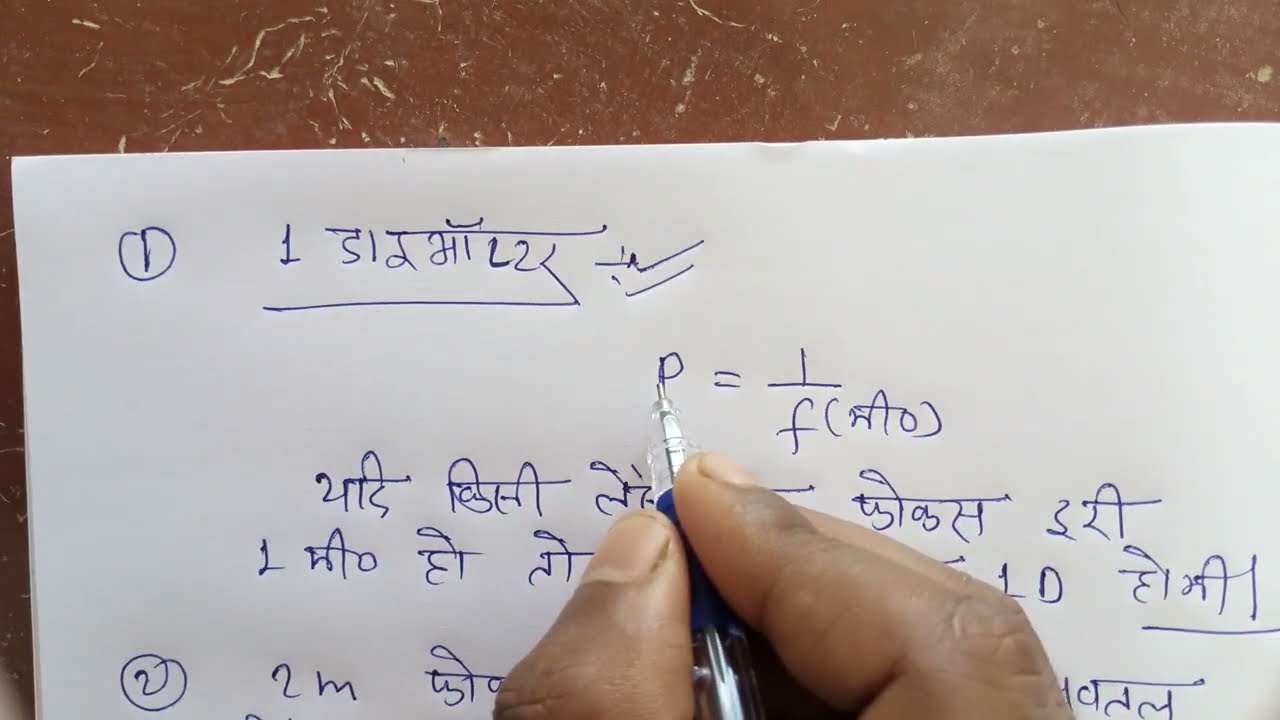 ① 1 डाइऑप्टर
P = 1/f(मी०)
यदि किसी लेंस फोकस दूरी
1 मी० हो तो 1D होगी।
② 2m अवतल